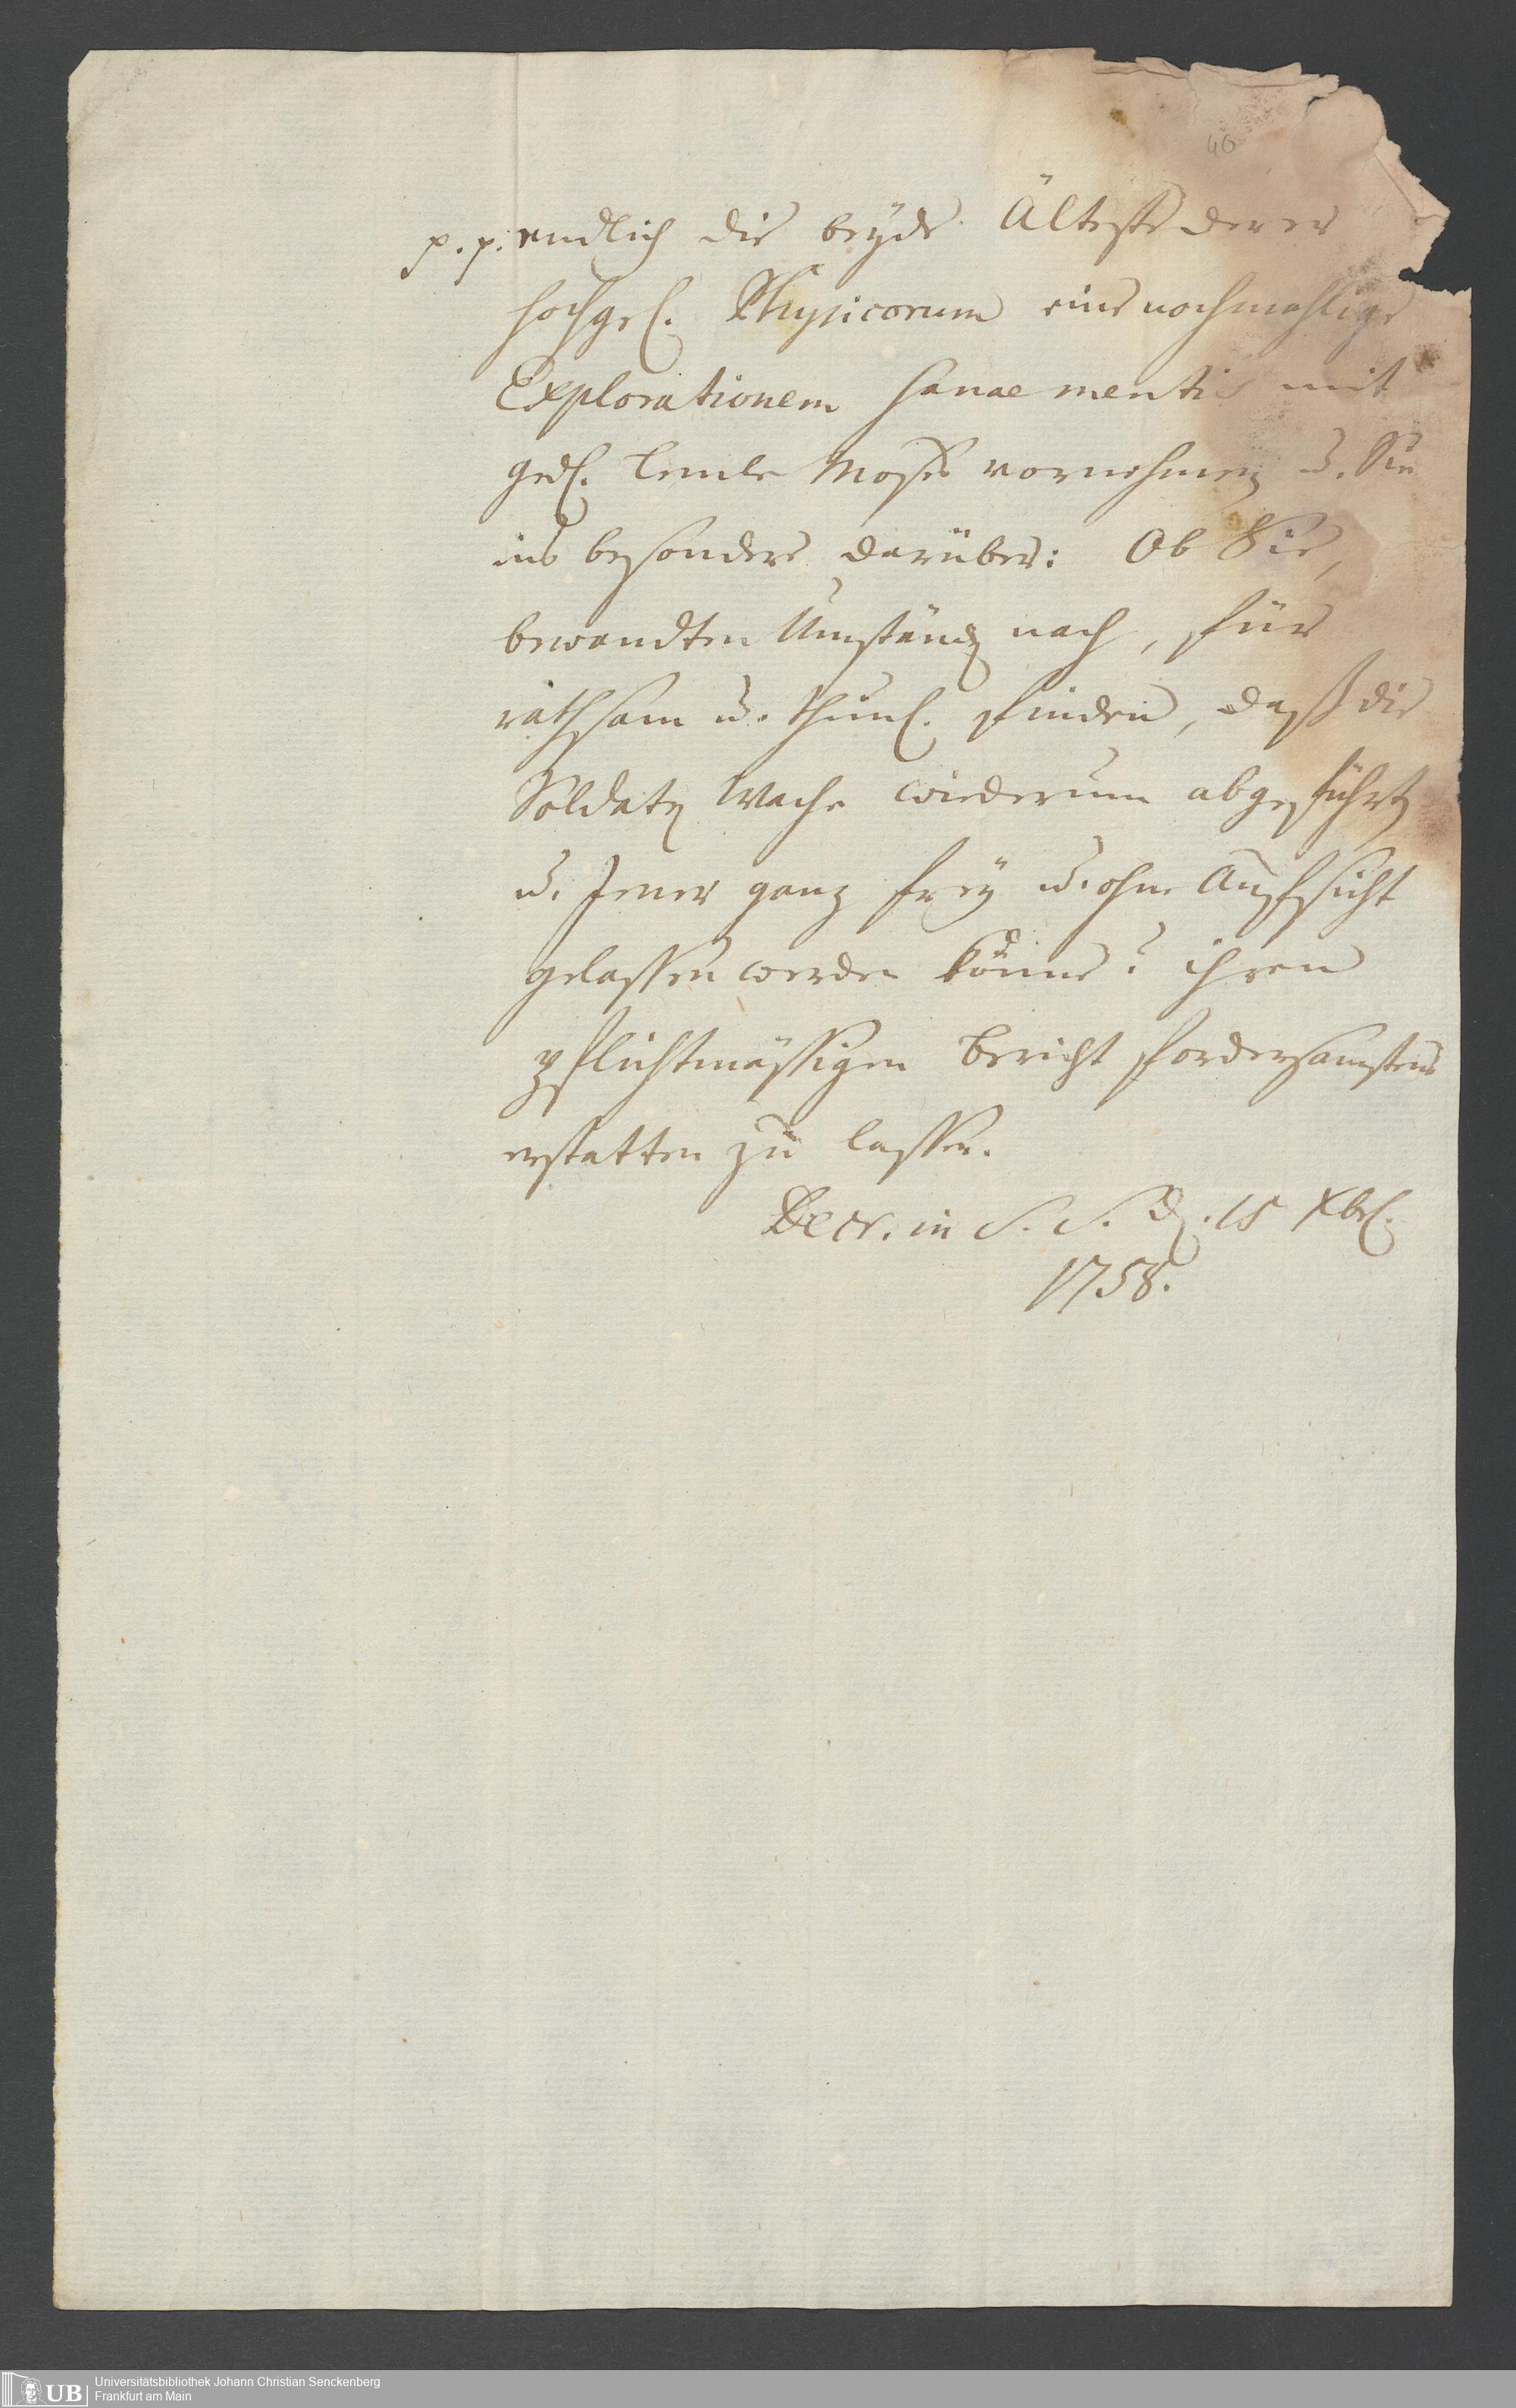 40
p. p. endlich die beyde Älteste derer
hochgel. Physicorum eine nochmahlige
Explorationem sanae mentis mit
ged. Lemle Moses vornehmen u. Sie
ins besondere darüber: Ob Sie,
bewandten Umständen nach, für
rathsam u. thunl. finden, daß die
Soldaten Wache wiederum abgeführt
u. Jener ganz frey u. ohne Aufsicht
gelassen werden könne? ihren
pflichtmässigen Bericht fordersamstens
erstatten zu lassen.
Decr. in S. S. d. 15 Xbr.
1758.
UB
Universitätsbibliothek Johann Christian Senckenberg
Frankfurt am Main